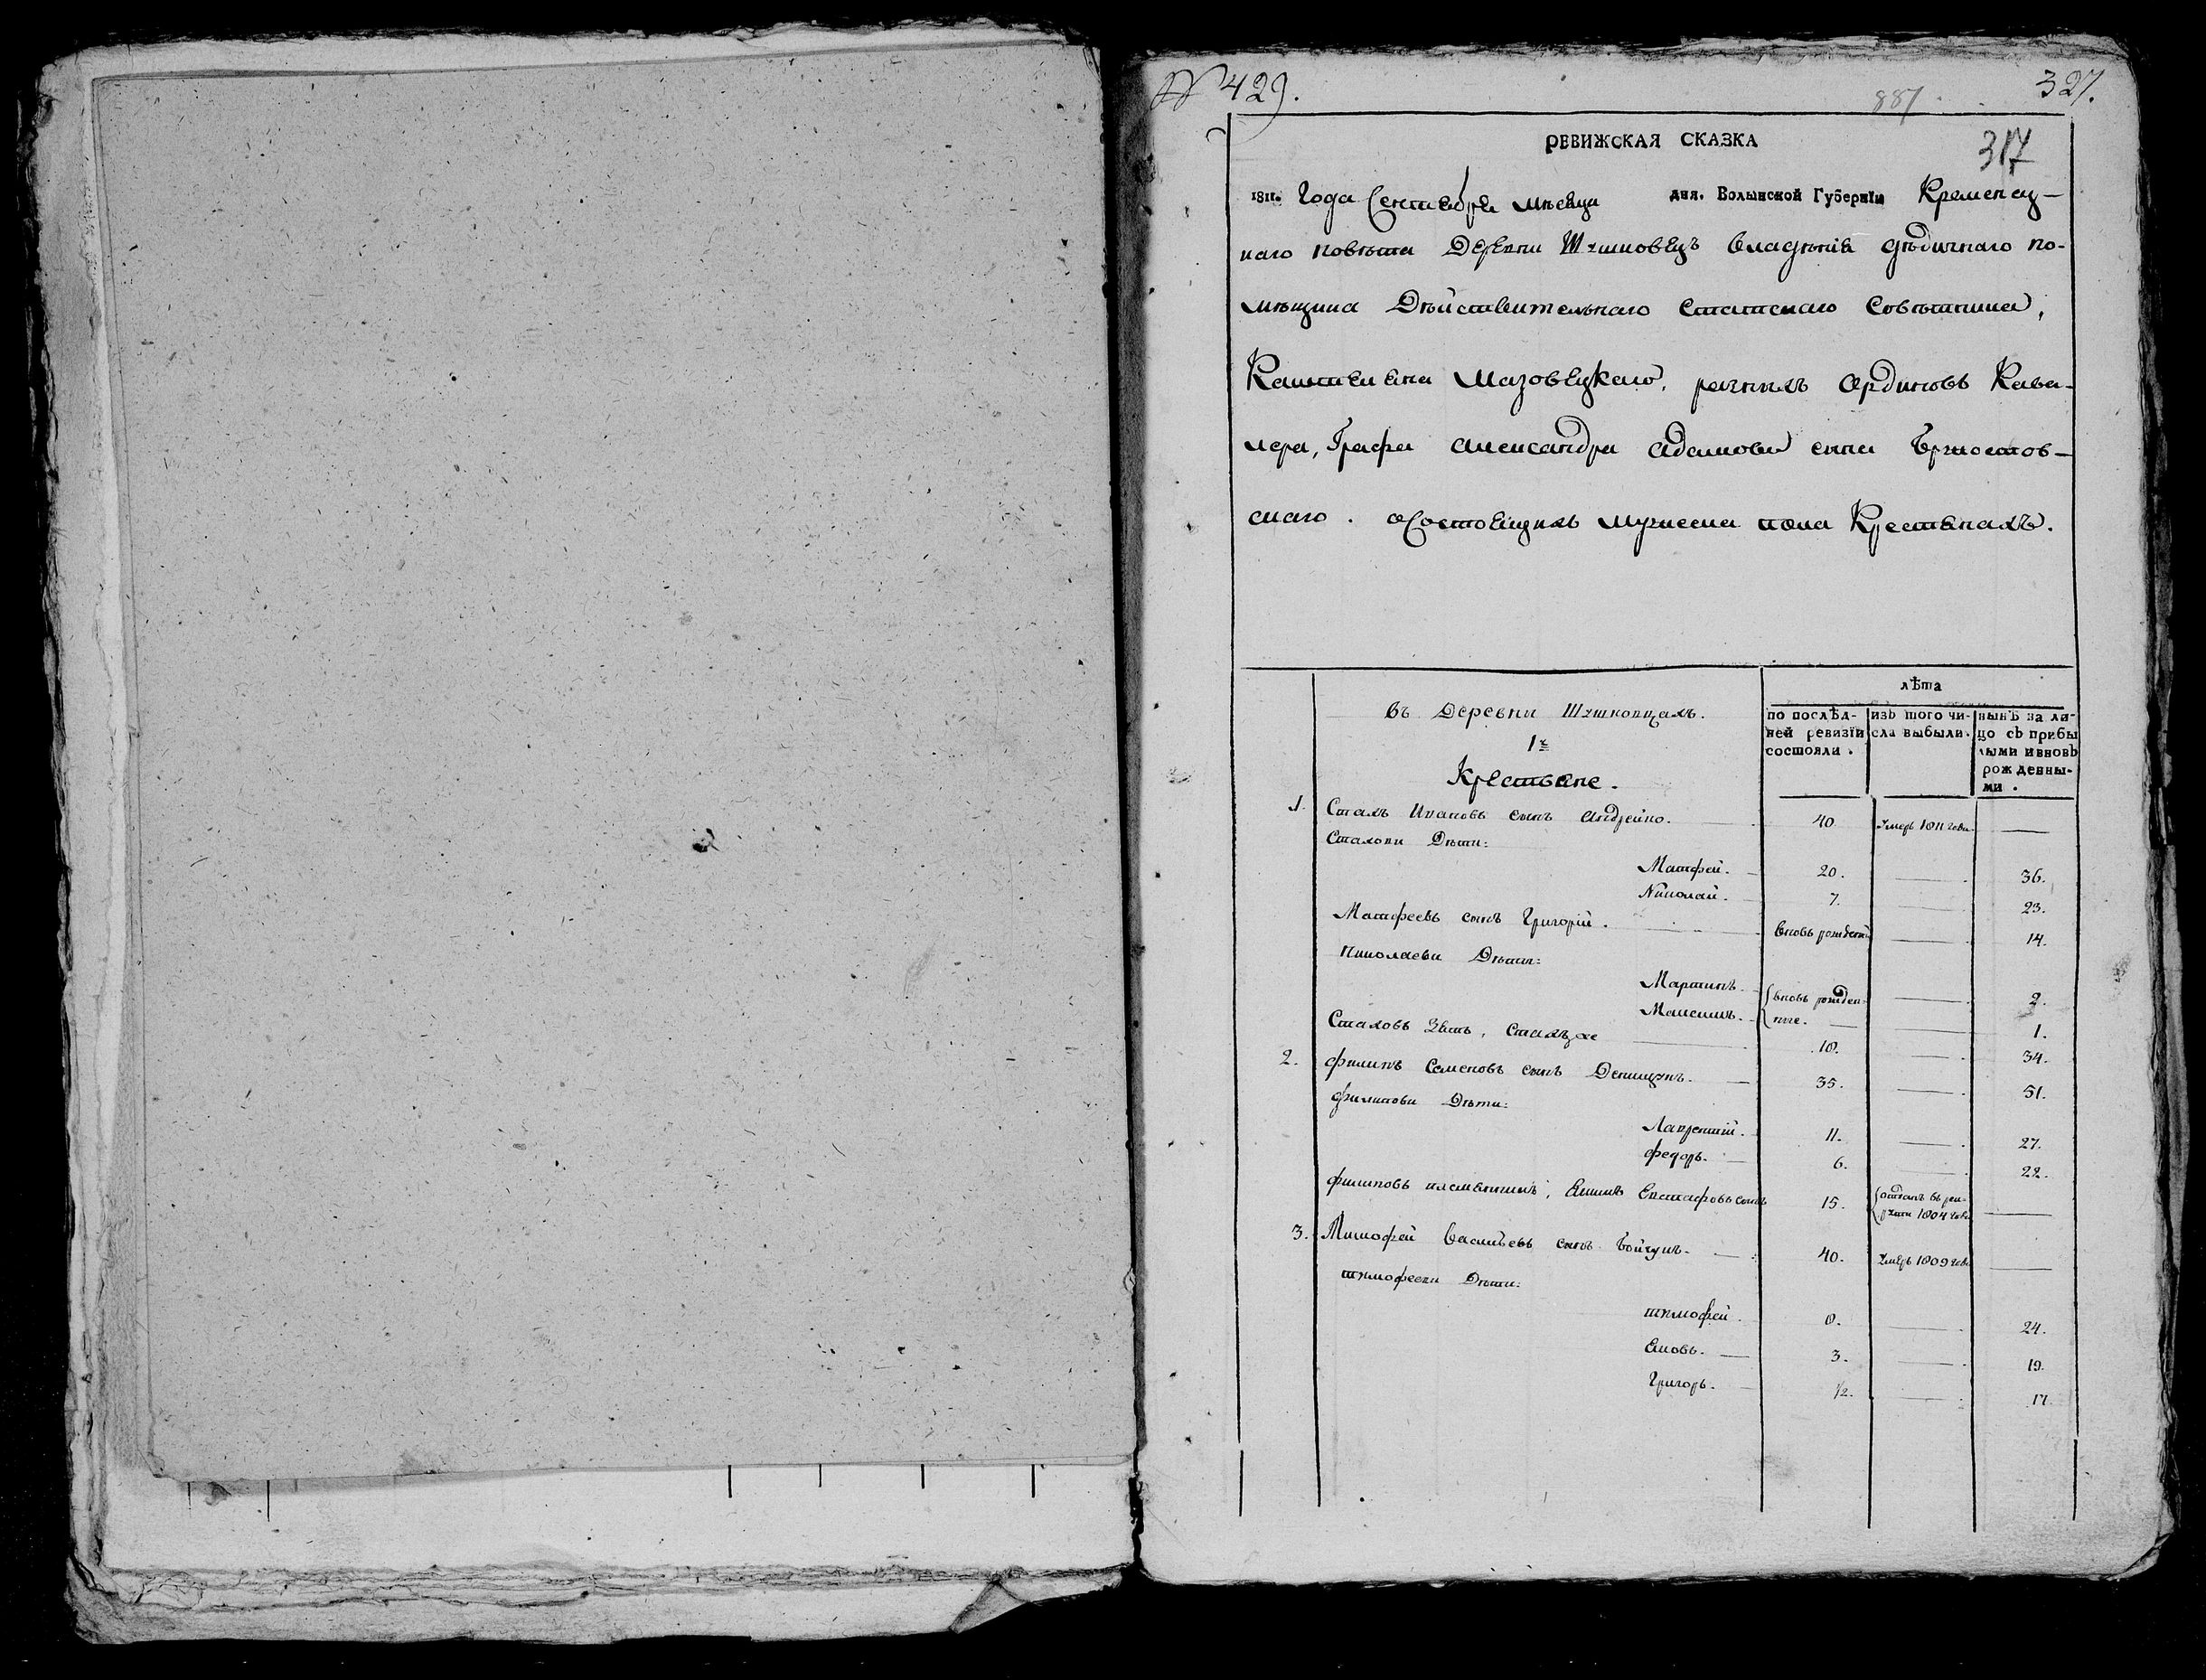 № 429.
887
327.
317
РЕВИЖСКАЯ СКАЗКА
1811. Года Сентября мѣсяца дня. Волынской Губерніи Кременец-
каго повѣта Деревни Шушковецъ владѣнія дѣдичнаго по-
мѣщика Дѣйствительнаго Статскаго Совѣтника,
Каштеляна Мазовецкаго, разныхъ Ординовъ Кава-
лера, Графа Александра Адамова сына Бржостов-
скаго. О состоящихъ мужеска пола Крестьянахъ.
лѣта
Въ Деревни Шушковцахъ.
по послѣд-
ней ревизіи
состояли.
изъ того чи-
сла выбыли.
нынѣ за ли-
цо съ прибы
лыми и вновь
рожденны-
ми.
Крестьяне.
1. Стахъ Ивановъ сынъ Андрейко. 40 Умеръ 1811 года
Стаховы Дѣти:
Матфей. 20. 36.
Николай. 7. 23.
Матфеевъ сынъ Григорій. вновь рожденъ 14.
Николаевы Дѣти:
Мартинъ. вновь рожден- 2.
Максимъ. ные. 1.
Стаховъ Зять, Стахъ же 18. 34.
2. Филипъ Семеновъ сынъ 35. 51.
Филиповы Дѣти:
Лаврентій. 11. 27.
Федоръ. 6. 22.
Филиповъ племянникъ, Екимъ Евстафовъ сынъ 15. отданъ въ рек-
руты 1804 года
3. Тимофей Васильевъ сынъ Бойчукъ. 40. Умеръ 1809 года
Тимофеевы Дѣти:
Тимофей. 8. 24.
Яковъ. 3. 19.
Григоръ. 1/2. 17.